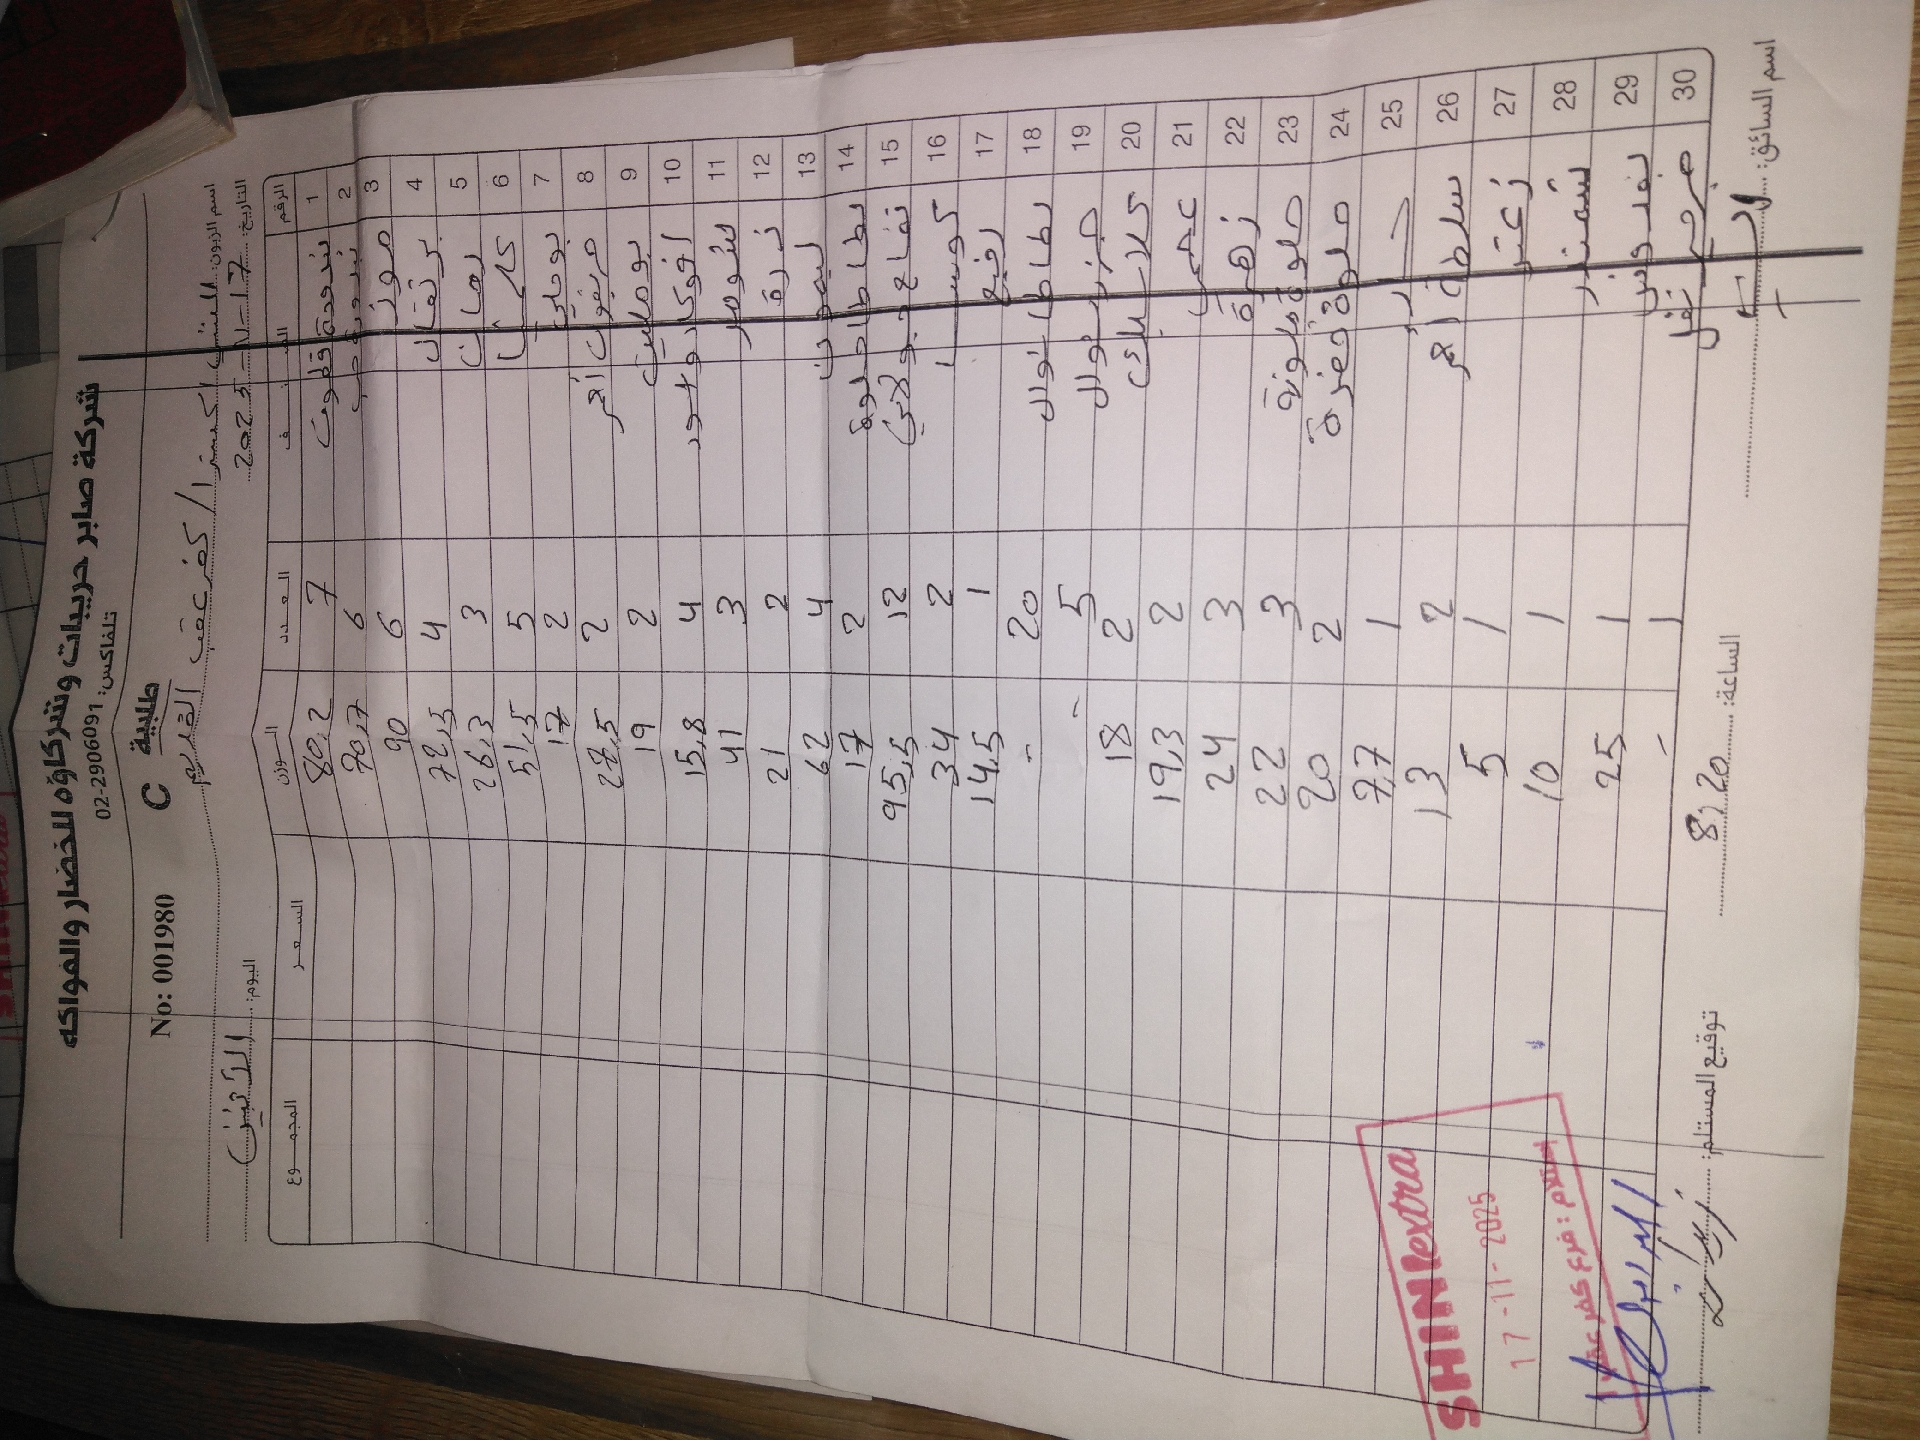 شركة صابر حريبات وشركاؤه للخضار والفواكه
تلفاكس: 02-2906091
No: 001980 C طلبية
اسم الزبون: اكسترا / كفر عقب القديم
التاريخ: 17-11-2025 اليوم: الاثنين
الرقم الصنف العدد الوزن السعر المجموع
1 بندورة 7 80,2
2 بندورة 6 70,7
3 موز 6 90
4 برتقال 4 72,5
5 رمان 3 26,3
6 كاكا 5 51,5
7 بوملي 2 17
8 احمر 2 27,5
9 2 19
10 افوكادو 4 15,8
11 ثوم 3 41
12 ذرة 2 21
13 ليمون 4 62
14 بطاطا حلوة 2 17
15 تفاح 12 95,5
16 كوسا 2 34
17 رفيع 1 14,5
18 بطاطا شوال 20 -
19 شوال 5 -
20 2 18
21 عجمي 2 19,3
22 زهرة 3 24
23 حلوة ملونة 3 22
24 حلوة خضرة 2 20
25 1 7,7
26 احمر 2 13
27 زعتر 1 5
28 شمندر 1 10
29 بقدونس 1 25
30 1 -
اسم السائق: الساعة: 8,20 توقيع المستلم:
SHINI extra
17-11-2025
استلام: فرع كفر عقب